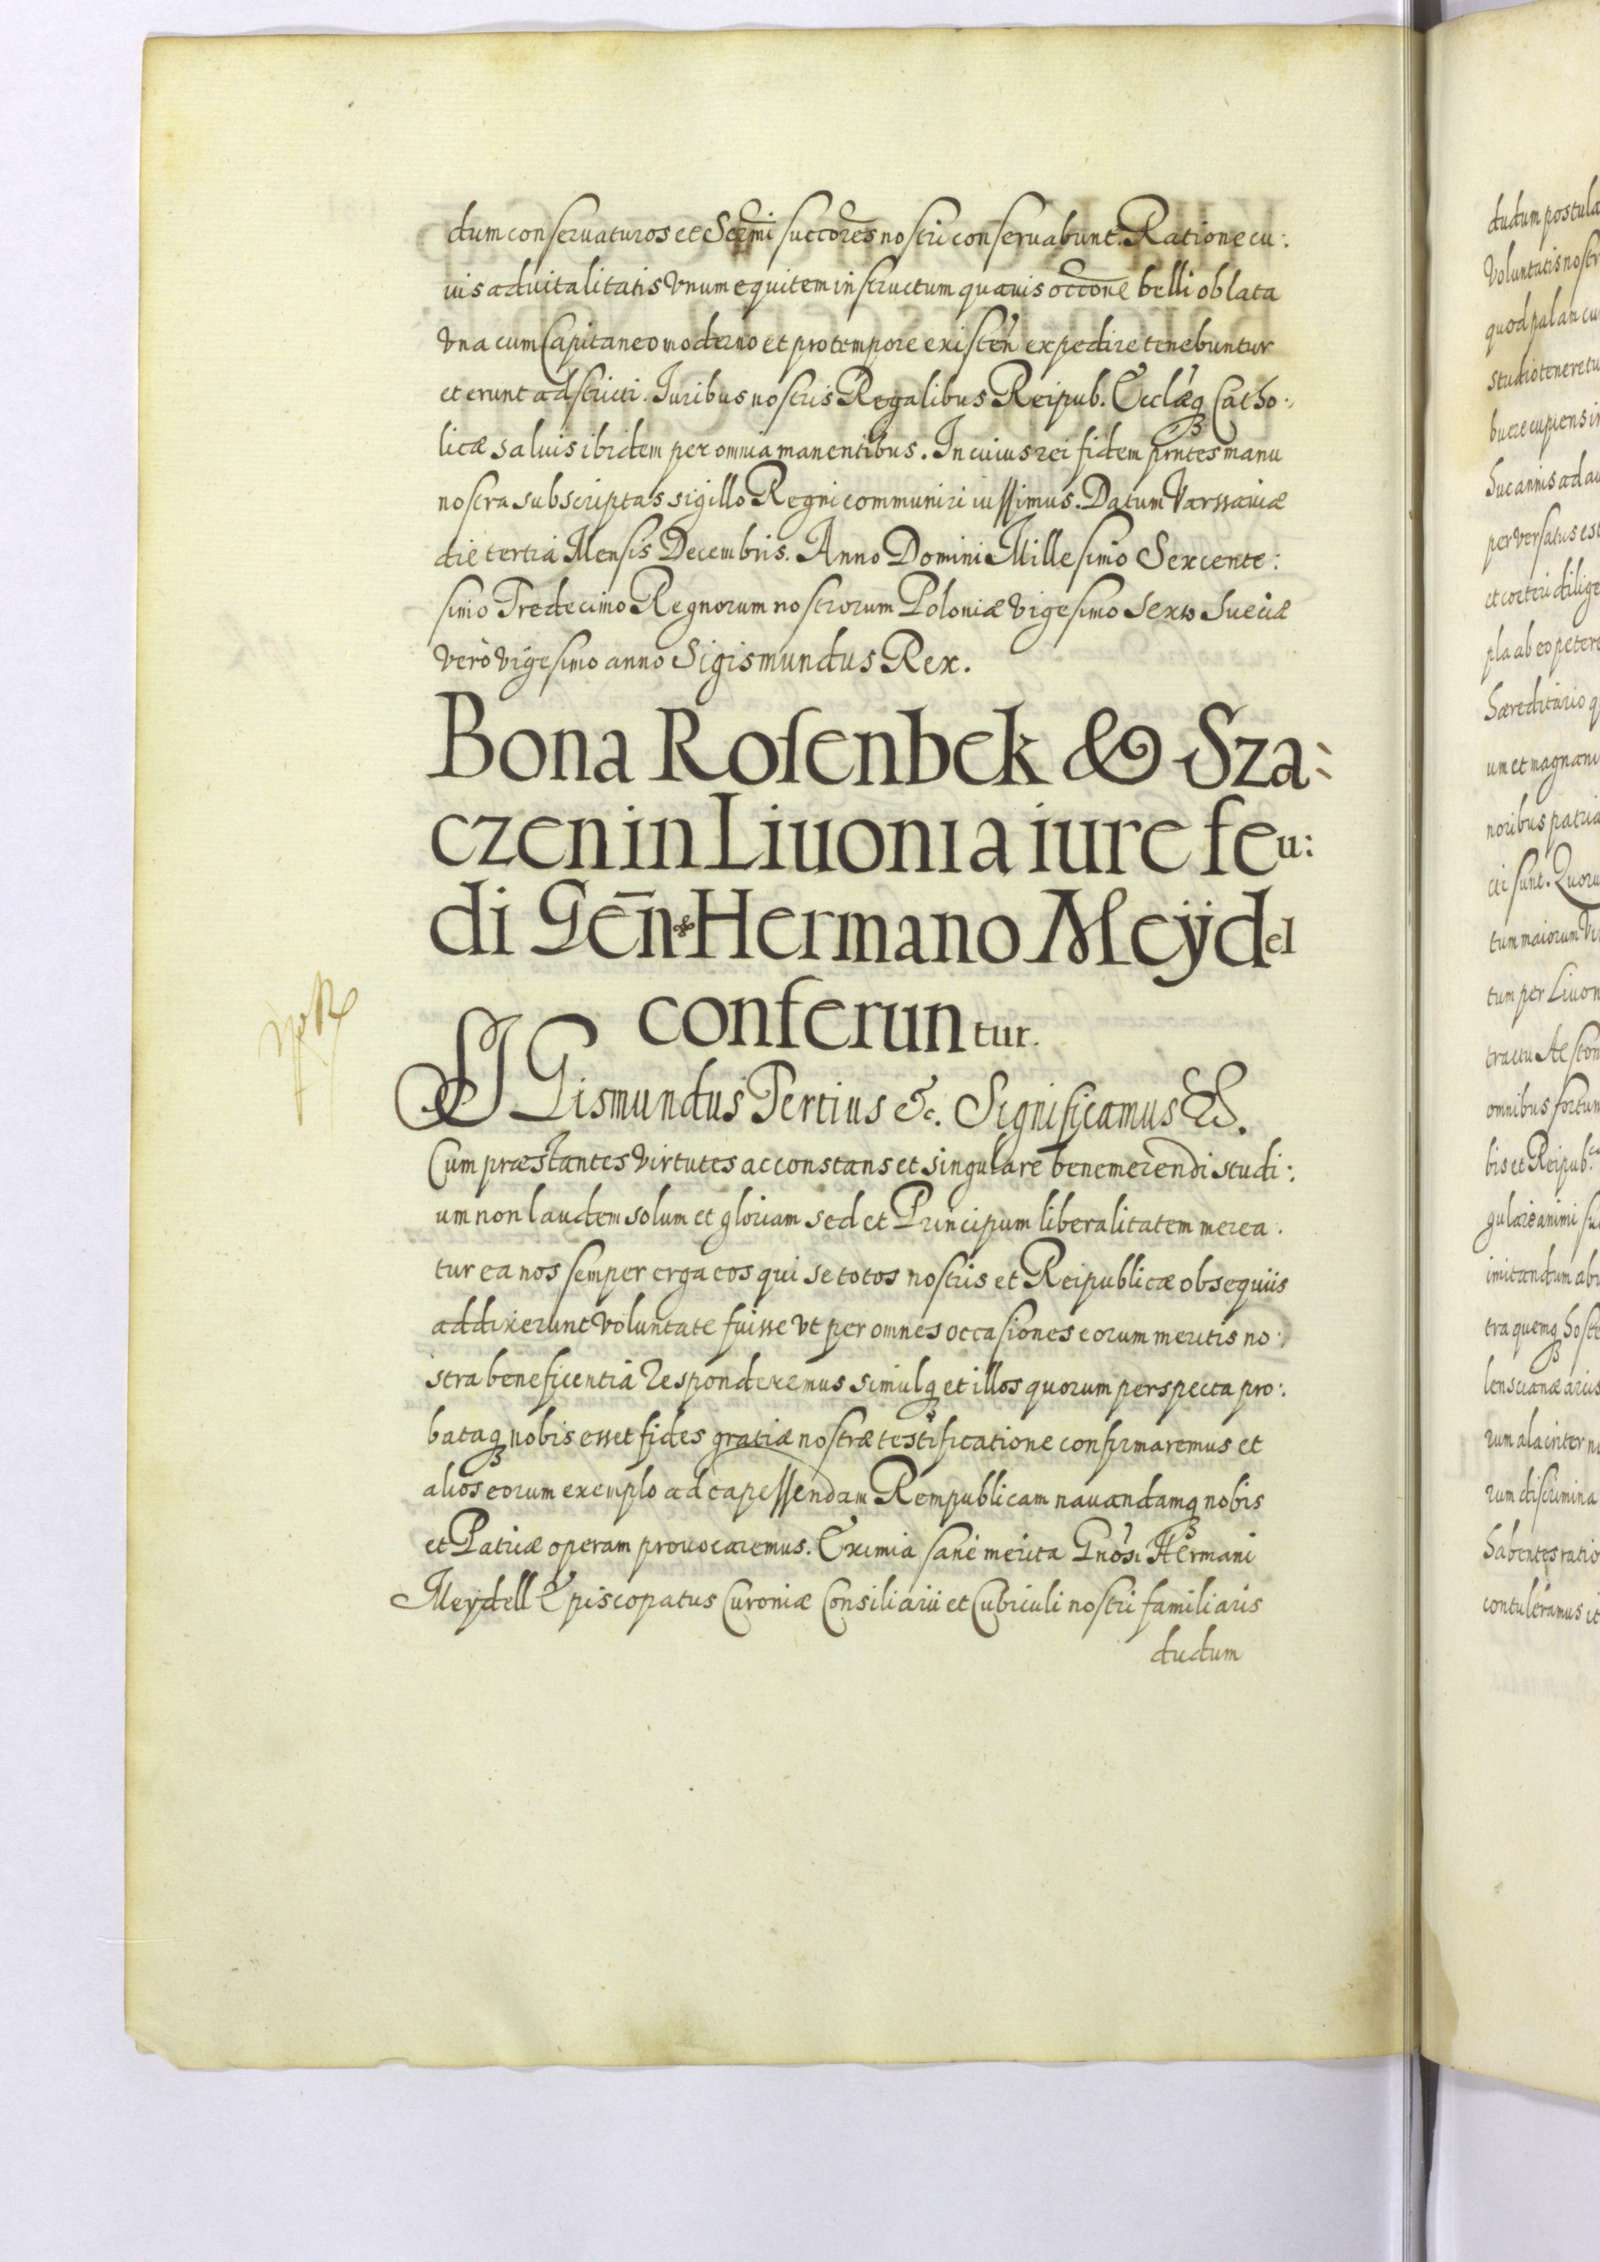 dum conservaturos et Serm̄i succ̄ores nostri conservabunt. Ratione cu:
ius advitalitatis Vnum equitem instructum quavis occ̄one belli oblata
Vna cum Capitaneo moderno et pro tempore existeń expedire tenebuntur
et erunt adstricti. Iuribus nostris Regalibus Reipub. Ecclǽq Catho:
licæ salvis ibidem per omnia manentibus. In cuius rei fidem prńtes manu
nostra subscriptas sigillo Regni communiri iussimus. Datum Varssaviæ
die tertiâ Mensis Decembris. Anno Domini Millesimo Sexcente:
simo Tredecimo Regnorum nostrorum Poloniæ Vigesimo Sexto Sueciæ
Verò vigesimo anno Sigismundus Rex.
Bona Rosenbek & Sza:
czen in Liuonia iure feu:
di Gen̄ Hermano Meÿdel
conferuntur.
SIGismundus Tertius &c. Significamus &c.
Cum præstantes Virtutes ac constans et singulare benemerendi studi:
um non laudem solum et gloriam sed et Principum liberalitatem merea:
tur ea nos semper erga eos qui se totos nostris et Reipublicæ obsequiis
addixerunt Voluntate fuisse Vt per omnes occasiones eorum meritis no:
stra beneficentiâ responderemus simulq et illos quorum perspecta pro:
bataq nobis esset fides gratiæ nostræ testificatione confirmaremus et
alios eorum exemplo ad capessendam Rempublicam navandamq nobis
et Patriæ operam provocaremus. Eximia sanè merita Gnósi Hermani
Meydell Episcopatus Curoniæ Consiliarii et Cubiculi nostri familiaris
dudum
dudum postula
Voluntatis nostr
quod palam cu
studio teneretu
buere cupiens in
huc annis ad au
per versatus est
et cæteri dilige
pla ab eo petere
Hæreditario q
um et magnani
noribus patria
cti sunt. Quoru
tum maiorum Vi
tum per Livon
tractu Aeston
omnibus fortun
bis et Reipub.
gulare animi su
imitandum abu
tra quemq hoste
lenscianæ arcis
rum alacriter n
rum discrimina
habentes ratio
contuleramus it